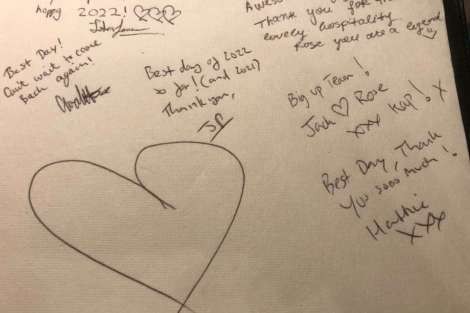 happy 2022! ♡♡♡
Aweso
Thank you for
lovely hospitality
Rose you are a legend
Best Day!
Can't wait to come
Back again!
Best day of 2022
so far! (and 2021)
Thank you,
J.P
Big up Team!
Jack ♡ Rose
xxx Kap! x
Best Day, Thank
You sooo much!
Hattie
xxx